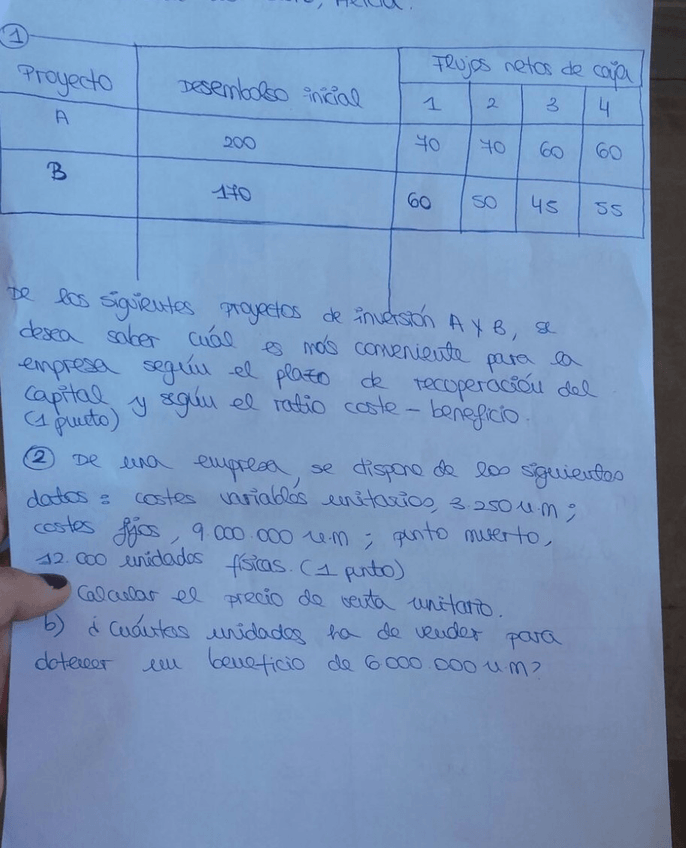 Alicia.
1
Proyecto Desembolso inicial Flujos netos de caja
1 2 3 4
A 200 70 70 60 60
B 170 60 50 45 55
De los siguientes proyectos de inversión A y B, se
desea saber cuál es más conveniente para la
empresa según el plazo de recuperación del
capital y según el ratio coste - beneficio.
(1 punto)
2 De una empresa, se dispone de los siguientes
datos: costes variables unitarios, 3.250 u.m;
costes fijos, 9.000.000 u.m; punto muerto,
12.000 unidades físicas. (1 punto)
Calcular el precio de venta unitario.
b) ¿Cuántas unidades ha de vender para
obtener un beneficio de 6000.000 u m?